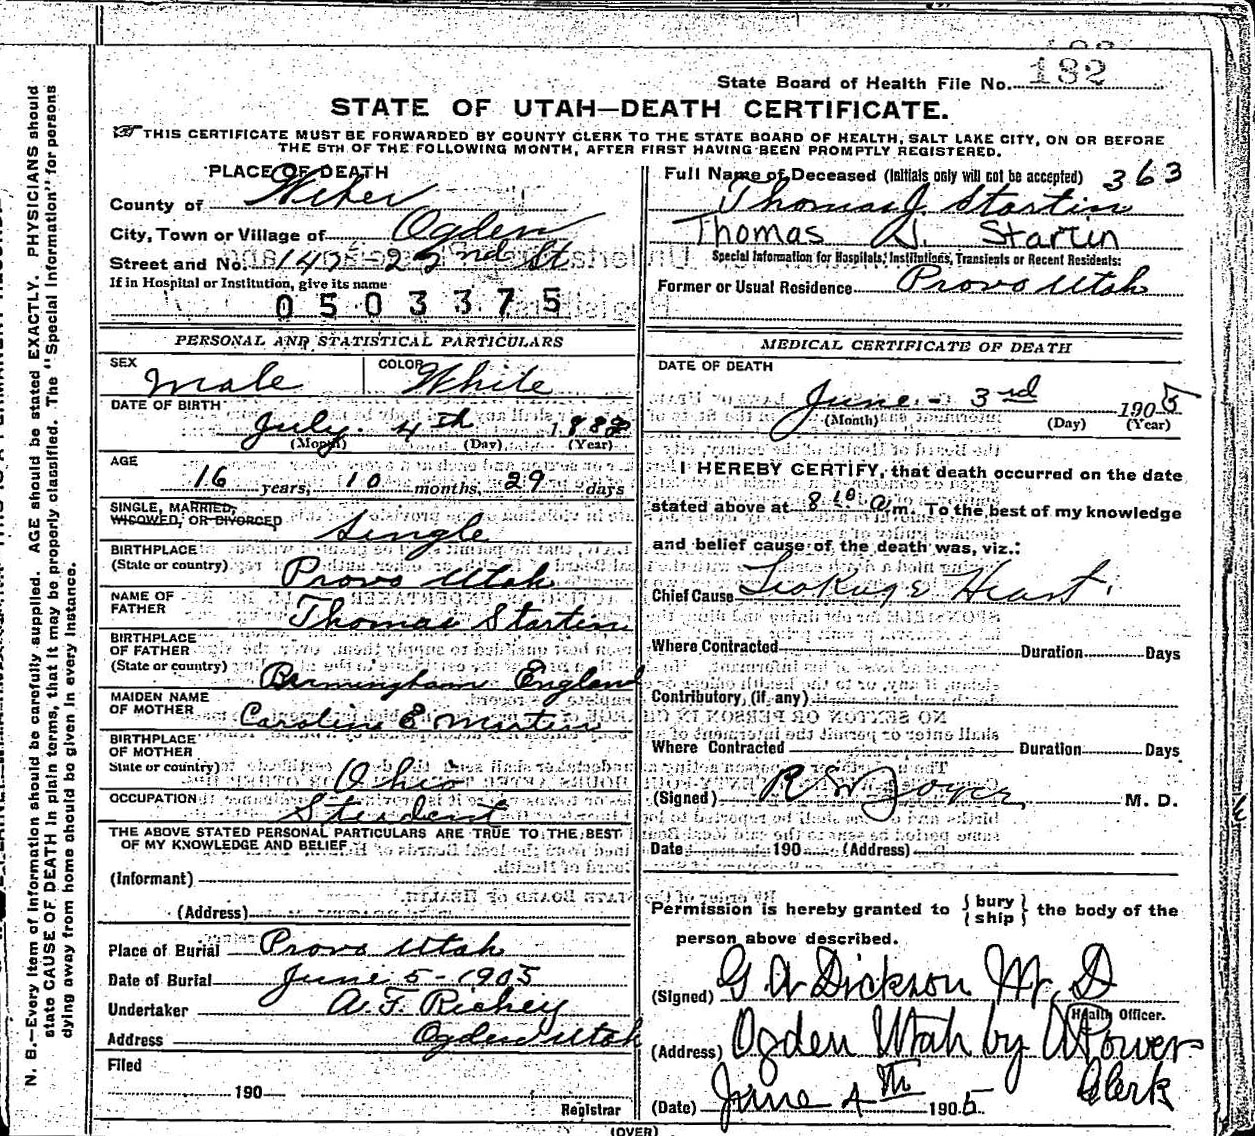 State Board of Health File No. 182
STATE OF UTAH—DEATH CERTIFICATE.
THIS CERTIFICATE MUST BE FORWARDED BY COUNTY CLERK TO THE STATE BOARD OF HEALTH, SALT LAKE CITY, ON OR BEFORE
THE 5TH OF THE FOLLOWING MONTH, AFTER FIRST HAVING BEEN PROMPTLY REGISTERED.
PLACE OF DEATH
County of Weber
City, Town or Village of Ogden
Street and No. 147 22nd St
If in Hospital or Institution, give its name
0503375
Full Name of Deceased (Initials only will not be accepted) 363
Thomas J. Startin
Thomas J. Startin
Special Information for Hospitals, Institutions, Transients or Recent Residents:
Former or Usual Residence Provo Utah
PERSONAL AND STATISTICAL PARTICULARS
SEX Male COLOR White
DATE OF BIRTH
July 4th 1888
(Month) (Day) (Year)
AGE
16 years, 10 months, 29 days
SINGLE, MARRIED,
WIDOWED, OR DIVORCED Single
BIRTHPLACE
(State or country) Provo Utah
NAME OF
FATHER Thomas Startin
BIRTHPLACE
OF FATHER
(State or country) Birmingham England
MAIDEN NAME
OF MOTHER Caroline E Martin
BIRTHPLACE
OF MOTHER
State or country) Ohio
OCCUPATION Student
THE ABOVE STATED PERSONAL PARTICULARS ARE TRUE TO THE BEST
OF MY KNOWLEDGE AND BELIEF
(Informant)
(Address)
Place of Burial Provo Utah
Date of Burial June 5-1905
Undertaker A. F. Richey
Address Ogden Utah
Filed
190
Registrar
MEDICAL CERTIFICATE OF DEATH
DATE OF DEATH
June - 3rd 1905
(Month) (Day) (Year)
I HEREBY CERTIFY, that death occurred on the date
stated above at 8 10 a m. To the best of my knowledge
and belief cause of the death was, viz.:
Chief Cause Leakage Heart.
Where Contracted Duration Days
Contributory, (if any)
Where Contracted Duration Days
(Signed) R S Joyce M. D.
Date 190 (Address)
Permission is hereby granted to { bury
ship } the body of the
person above described.
(Signed) G A Dickson M. D
Health Officer.
(Address) Ogden Utah by A Power
Clerk
(Date) June 4th 1905
(OVER)
N. B.—Every item of information should be carefully supplied. AGE should be stated EXACTLY. PHYSICIANS should
state CAUSE OF DEATH in plain terms, that it may be properly classified. The "Special Information" for persons
dying away from home should be given in every instance.